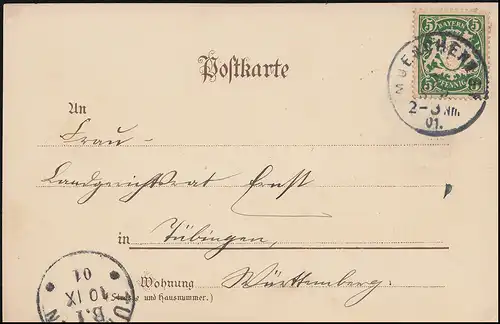 5 BAYERN 5
5 PFENNIG
MUENCHEN
2-3 Nm.
01.
Postkarte
An
Frau
Landgerichtsrat Ernst
in Tübingen,
Wohnung Württemberg.
(Strasse und Hausnummer.)
10 IX
01